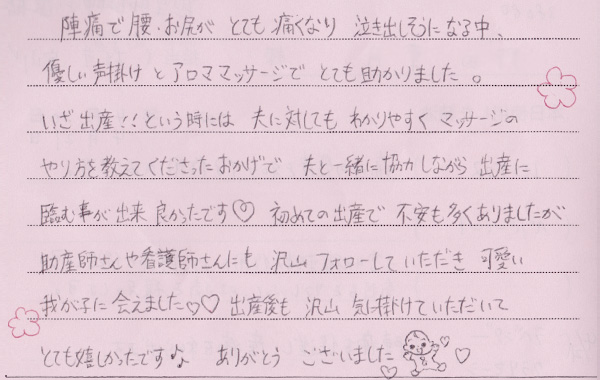 陣痛で腰・お尻が とても痛くなり 泣き出しそうになる中、
優しい声掛けとアロママッサージで とても助かりました。
いざ出産!!という時には 夫に対しても わかりやすく マッサージの
やり方を教えてくださったおかげで 夫と一緒に協力しながら 出産に
臨む事が出来 良かったです♡ 初めての出産で 不安も多くありましたが
助産師さんや看護師さんにも 沢山フォローしていただき 可愛い
我が子に会えました♡♡ 出産後も 沢山 気に掛けていただいて
とても嬉しかったです♪ ありがとう ございました